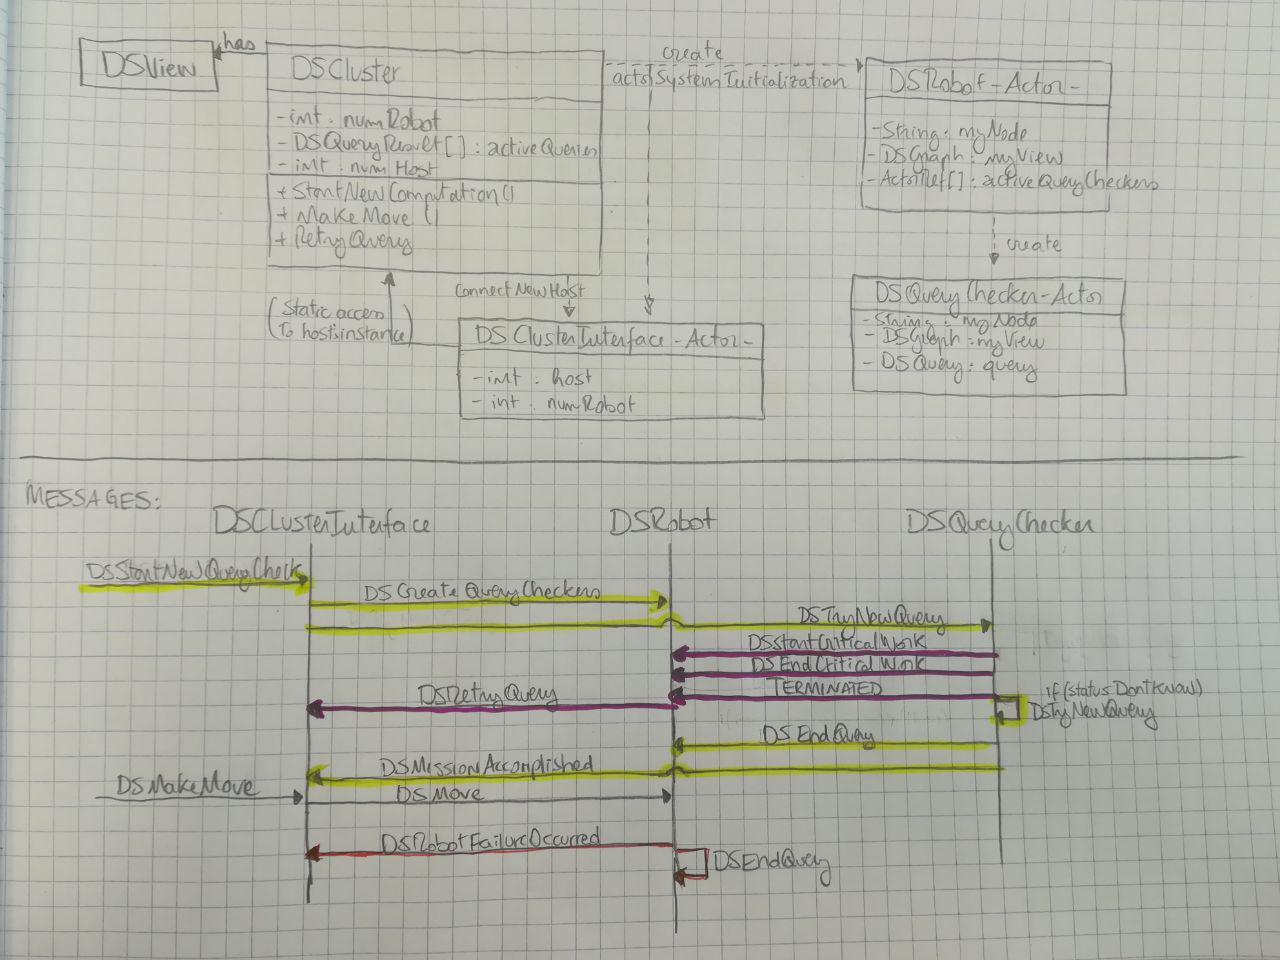 DSView
has
DSCluster
- int : numRobot
- DSQueryResult[] : activeQueries
- int : numHost
+ StartNewComputation()
+ MakeMove ()
+ RetryQuery
create
actorSystemInitialization
DSRobot -Actor-
- String : myNode
- DSGraph : myView
- ActorRef[] : activeQueryCheckers
create
(Static access
to host's instance)
connectNewHost
DSClusterInterface -Actor-
- int : host
- int : numRobot
DSQueryChecker-Actor
- String : myNode
- DSGraph : myView
- DSQuery : query
MESSAGES:
DSClusterInterface
DSRobot
DSQueryChecker
DSStartNewQueryCheck
DSCreateQueryCheckers
DSTryNewQuery
DSStartCriticalWork
DSEndCriticalWork
TERMINATED
DSRetryQuery
if (status DontKnow)
DSTryNewQuery
DSEndQuery
DSMissionAccomplished
DSMakeMove
DSMove
DSRobotFailureOccurred
DSEndQuery